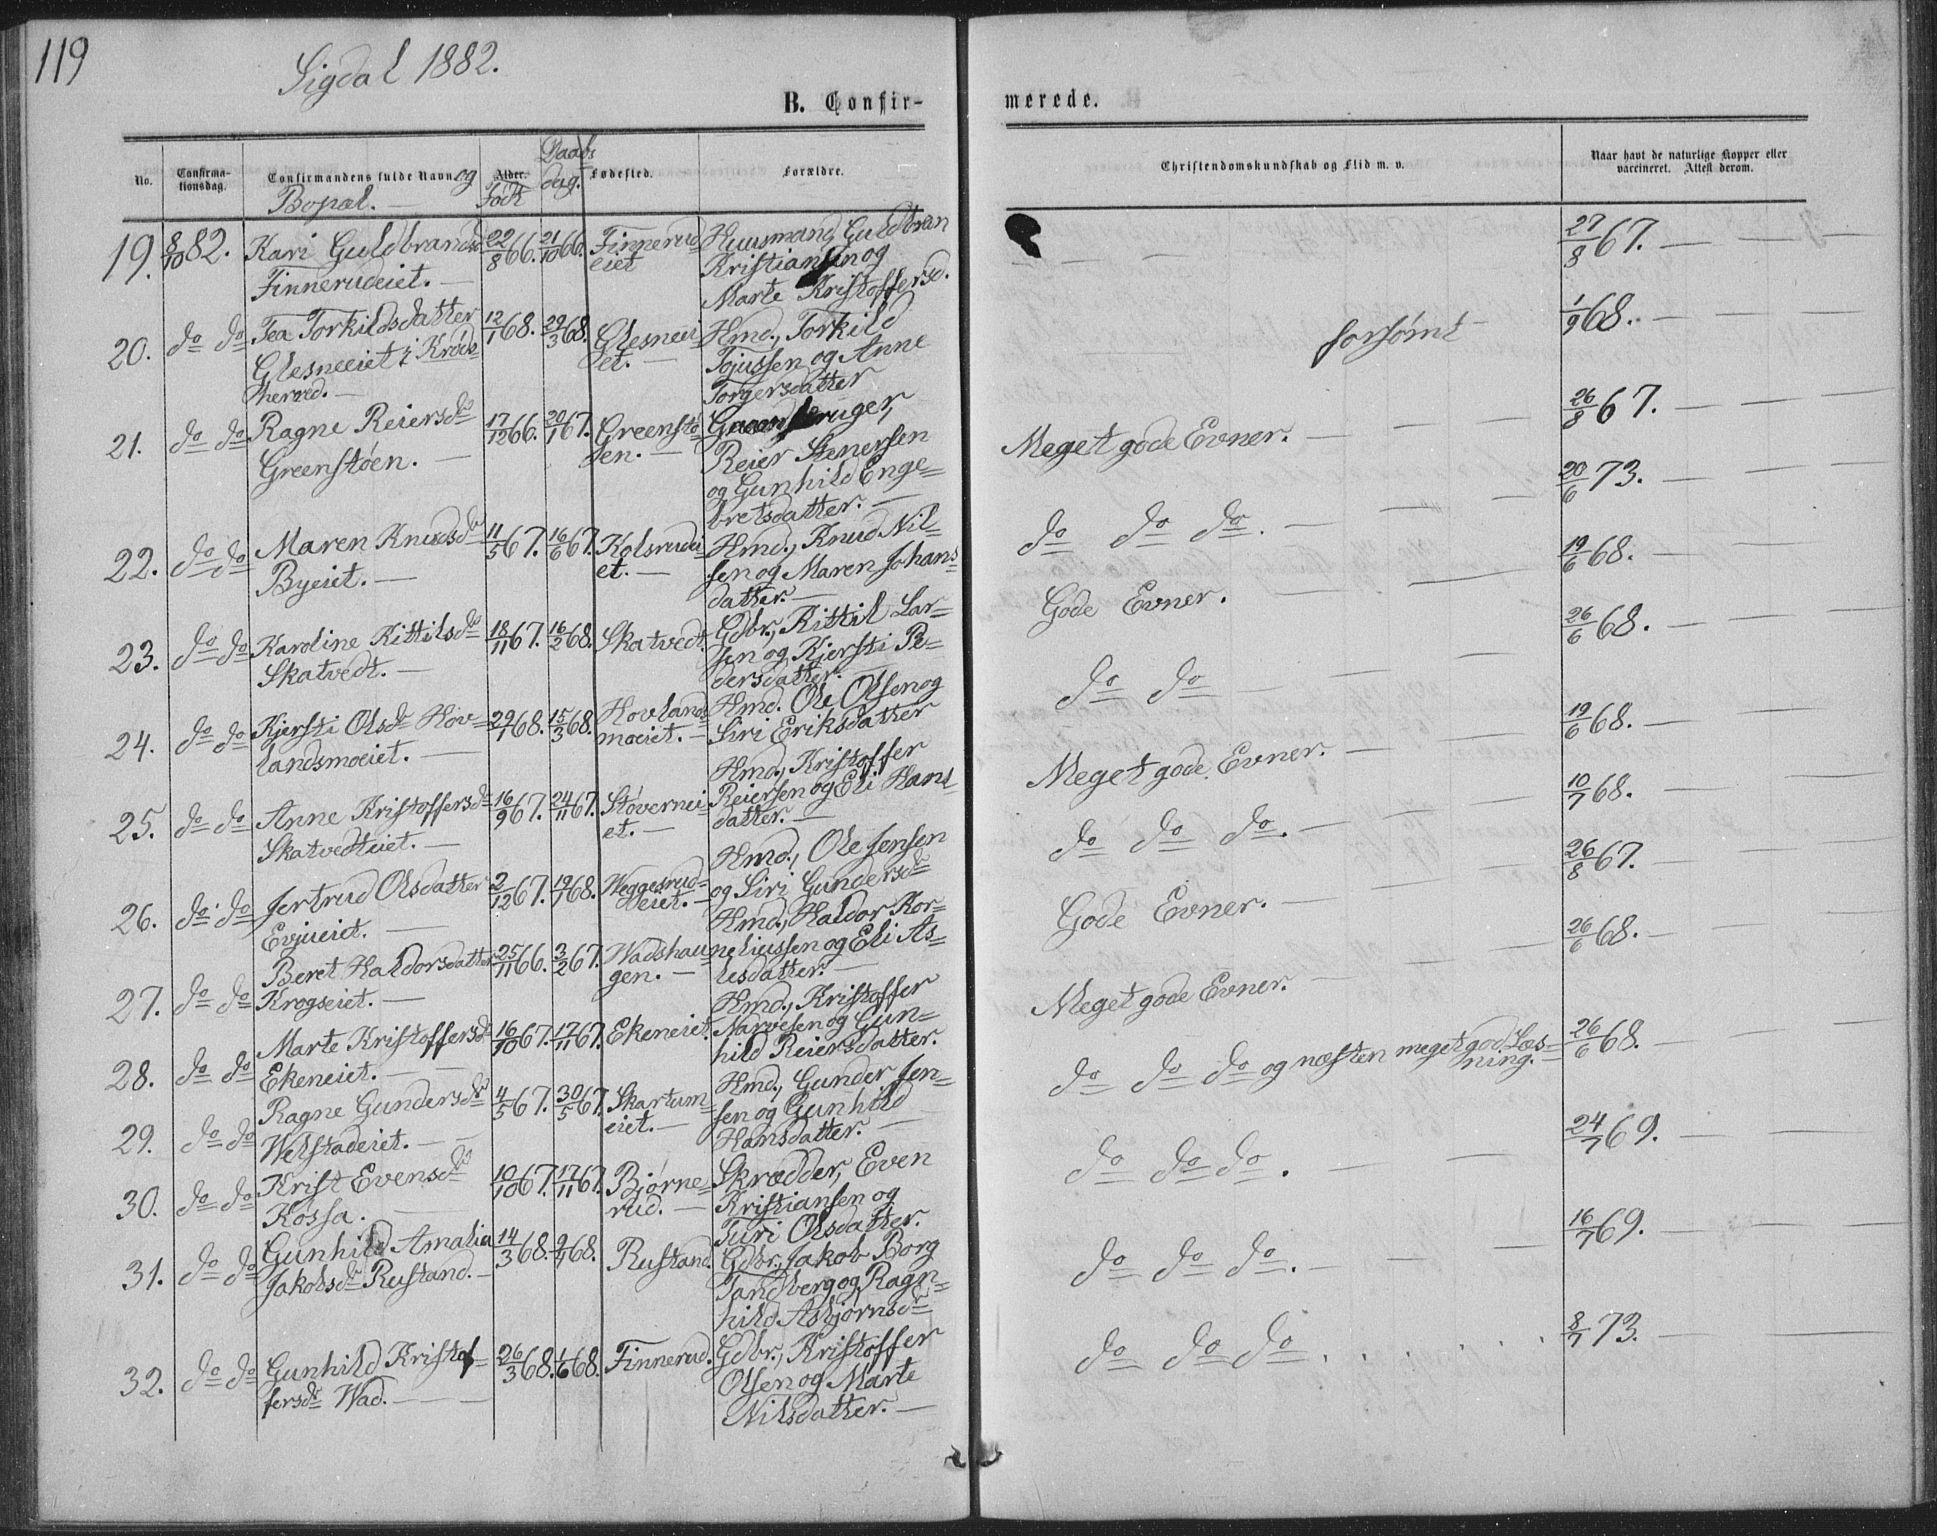 119
Sigdal 1882.
B. Confirmerede.
No.
Confirmationsdag.
Confirmandens fulde Navn og Bopæl. —
Alder. født
Daabsdag.
Fødested.
Forældre.
Christendomskundskab og Flid m. v.
Naar havt de naturlige Kopper eller vaccineret. Attest derom.
19. 8/10 82. Kari Guldbrandsd 22/8 66. 21/10 66. Finnerud= Huusmand, Guldbran
Finnerudeiet. — eiet Kristiansen og
Marte Kristoffersd.
27/8 67. — — —
20. do do Tea Torkildsdatter 12/1 68. 29/3 68. Glesneei Hmd., Torkild
Glesneeiet i Krøds= et. — Tojussen og Anne
herred. — Torgersdatter
forsømt 1/9 68. —
21. do do Ragne Reiersd 17/12 66. 20/1 67. Greenstø
Greenstøen. — en. — Reier Stenersen
og Gunhild Enge=
bretsdatter. —
Meget gode Evner. — 26/8 67. —
22. do do Maren Knudsd 11/5 67. 16/6 67. Kolsrudei Hmd., Knud Nil=
Byeiet. — et. — sen og Maren Johans
datter. —
do do do. — 20/6 73. —
23. do do Karoline Kittilsd 18/11 67. 16/2 68. Skatvedt. Gdbr., Kittil Lar=
Skatvedt. — sen og Kjersti Pe=
dersdatter.
Gode Evner. — 19/6 68. —
24. do do Kjersti Olsd Hov= 29/1 68. 15/3 68. Hovlands Hmd. Ole Olsen og
landsmoeiet. — moeiet. — Siri Eriksdatter
do do — 26/6 68. —
25. do do Anne Kristoffersd 16/9 67. 24/11 67. Støvernei Hmd., Kristoffer
Skatvedteiet. — et. — Reiersen og Eli Hans
datter. —
Meget gode Evner. — 19/6 68. —
26. do do Jertrud Olsdatter 2/12 67. 19/1 68. Weggesrud= Hmd., Ole Jensen
Evjueiet. — eiet. — og Siri Gundersd
do do do. — 10/7 68. —
27. do do Beret Haldorsdatter 25/11 66. 3/2 67. Wadshau Hmd., Haldor Kor=
Krogseiet. — gen. — neliussen og Eli As=
lesdatter. —
Gode Evner. — 26/8 67. —
28. do do Marte Kristoffersd 16/10 67. 17/11 67. Ekeneiet. Hmd., Kristoffer
Ekeneiet. — Narvesen og Gun=
hild Reiersdatter.
Meget gode Evner. — 26/6 68. —
29. do do Ragne Gundersd 4/5 67. 30/5 67. Skartum= Hmd., Gunder Jen=
Welstadeiet. — eiet. — sen og Gunhild
Hansdatter. —
do do do og næsten meget god Læs=
ning. — 26/6 68. —
30. do do Krist Evensd 10/10 67. 17/11 67. Bjørne= Skrædder, Even
Kossa. — rud. — Kristiansen og
Turi Olsdatter.
do do do. — 24/7 69. —
31. do do Gunhild Amalia 14/3 68. 9/7 68. Rustand. Gdbr., Jakob Borg
Jakobsd Rustand. — Tandberg og Ragn=
hild Asbjørnsd
do do do. — 16/7 69. —
32. do do Gunhild Kristof= 26/3 68. 1/6 68. Finnerud. Gdbr., Kristoffer
fersd Wad. — Olsen og Marte
Nilsdatter. —
do do do . . . . . 8/7 73. —